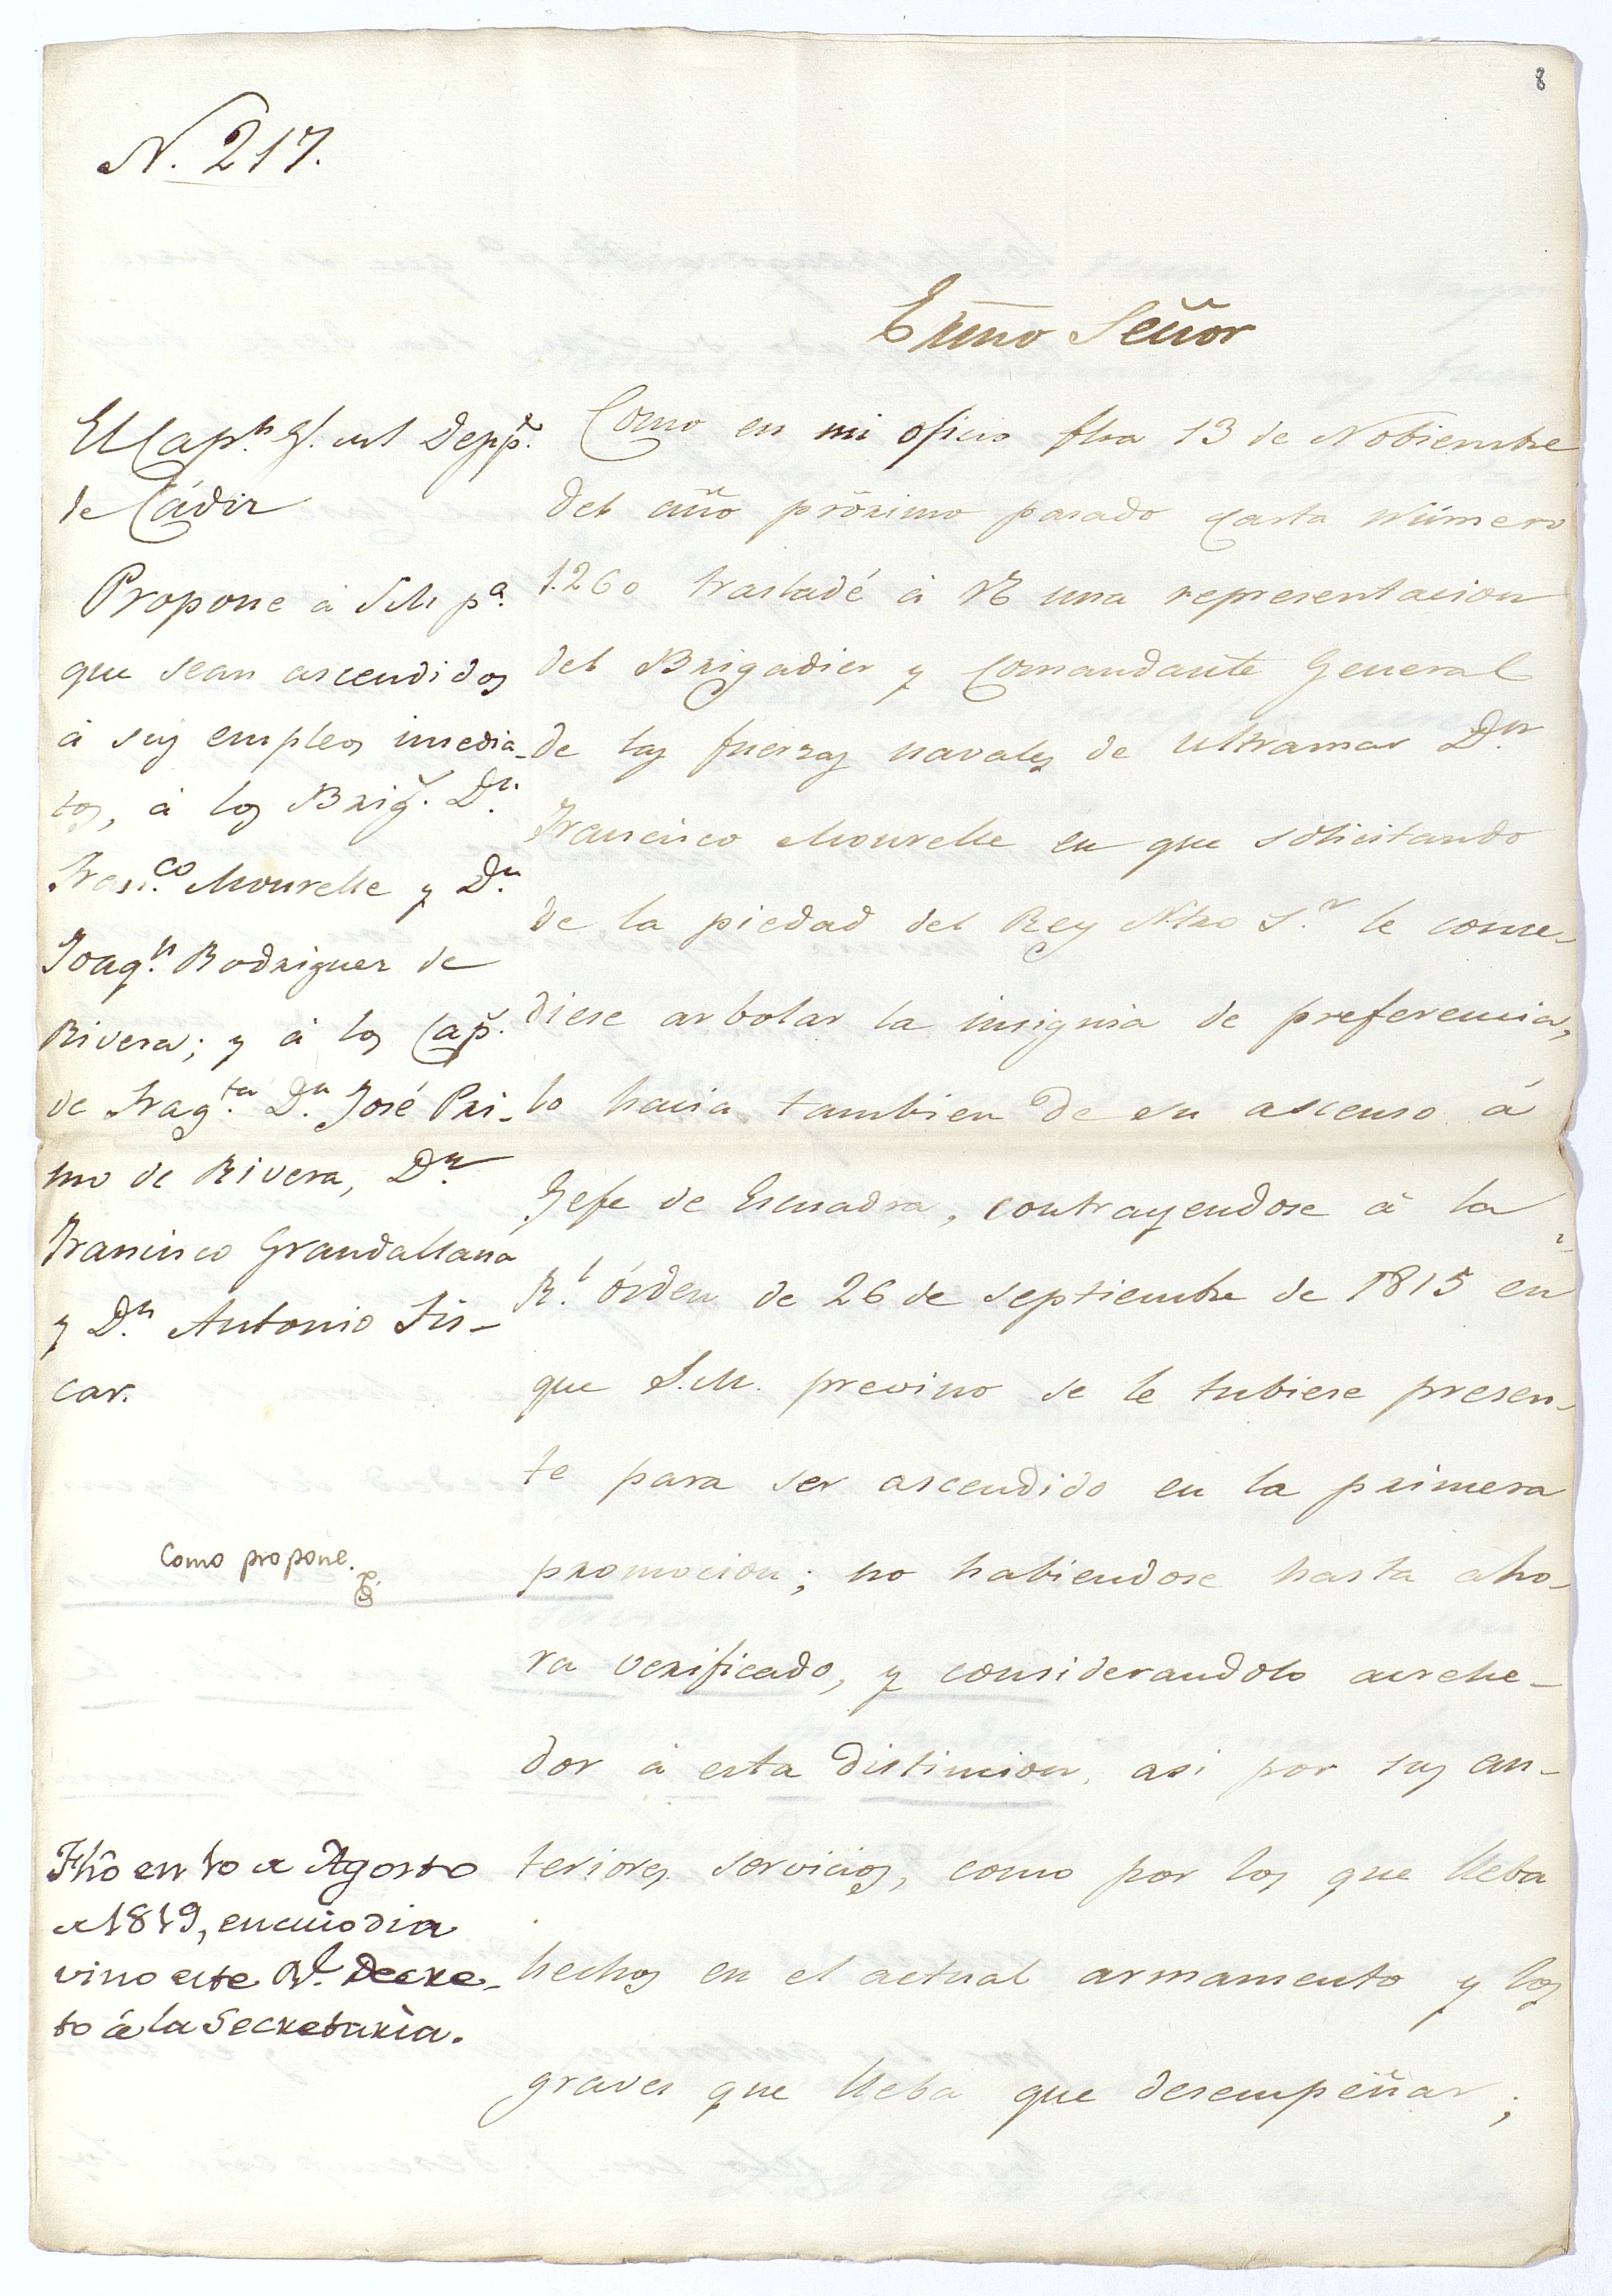 8
N. 217.
Exmo Señor
El Cap.n Gl. del Depp.to
de Cádiz
Propone á S M p.a
que sean ascendidos
á sus empleos imedia-
tos, á los Brig.s D.n
Fran.co Mourelle y D.n
Joaq.n Rodriguez de
Rivera; y á los Cap.s
de Frag.ta D.n José Pri-
mo de Rivera, D.n
Francisco Grandallana
y D.n Antonio Fis-
car.
Como propone.
Fhô en 10 de Agosto
de 1819, en cuio dia
vino este R.l Decre-
to á la Secretaría.
Como en mi oficio fha 13 de Nobiembre
del año próximo pasado carta Número
1.260 trasladé á VE una representacion
del Brigadier y Comandante General
de las fuerzas navales de Ultramar D.n
Francisco Mourelle en que solicitando
de la piedad del Rey Ntro S.r le conce-
diese arbolar la insignia de preferencia,
lo hacia tambien de su ascenso á
Gefe de Escuadra, contrayendose á la
R.l órden de 26 de septiembre de 1815 en
que S.M. previno se le tubiese presen-
te para ser ascendido en la primera
promocion; no habiendose hasta aho-
ra verificado, y considerandolo acrehe-
dor á esta distincion, asi por sus an-
teriores servicios, como por los que lleba
hechos en el actual armamento y los
graves que lleba que desempeñar;